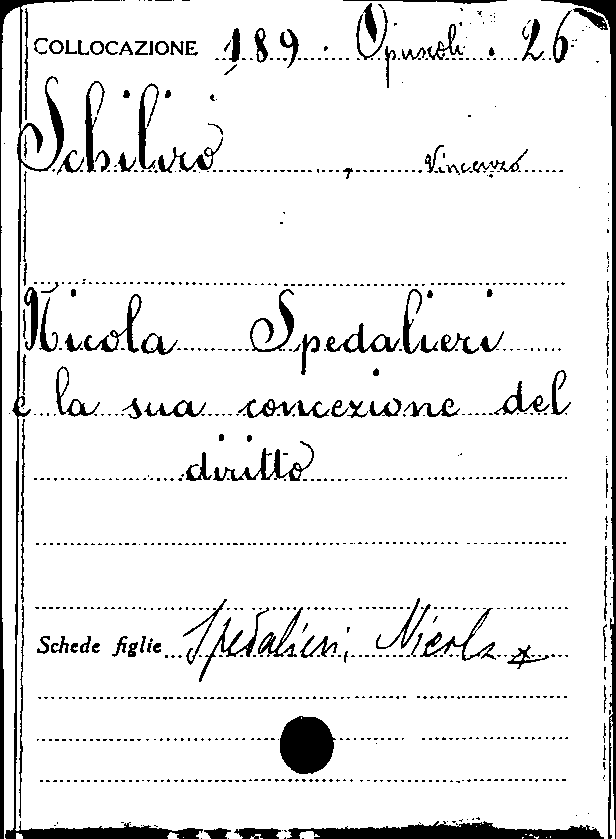 COLLOCAZIONE 189 . Opuscoli . 26
Schilirò , Vincenzo
Nicola Spedalieri
e la sua concezione del
diritto
Schede figlie Spedalieri, Nicola *